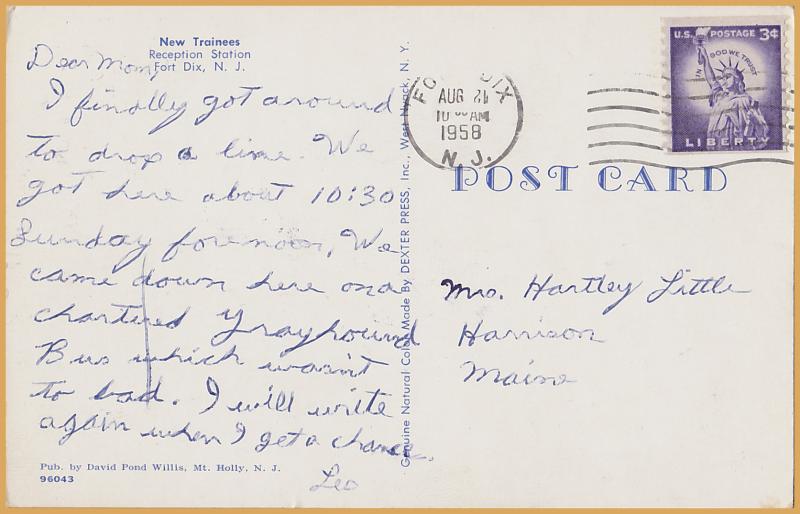 New Trainees
Reception Station
Fort Dix, N. J.
Dear Mom,
I finally got around
to drop a line. We
got here about 10:30
Sunday forenoon, We
came down here on a
chartered Grayhound
Bus which wasn't
to bad. I will write
again when I get a chance.
Leo
Pub. by David Pond Willis, Mt. Holly, N. J.
96043
Genuine Natural Color Made By DEXTER PRESS, Inc., West Nyack, N. Y.
FORT DIX
AUG 21
10 AM
1958
N. J.
U.S. POSTAGE 3¢
IN GOD WE TRUST
LIBERTY
POST CARD
Mrs. Hartley Little
Harrison
Maine